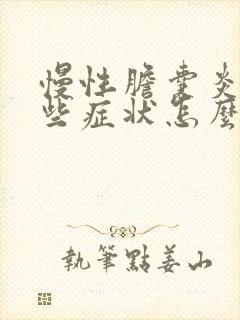 慢性膽囊炎
些症狀怎麼
執筆點姜山